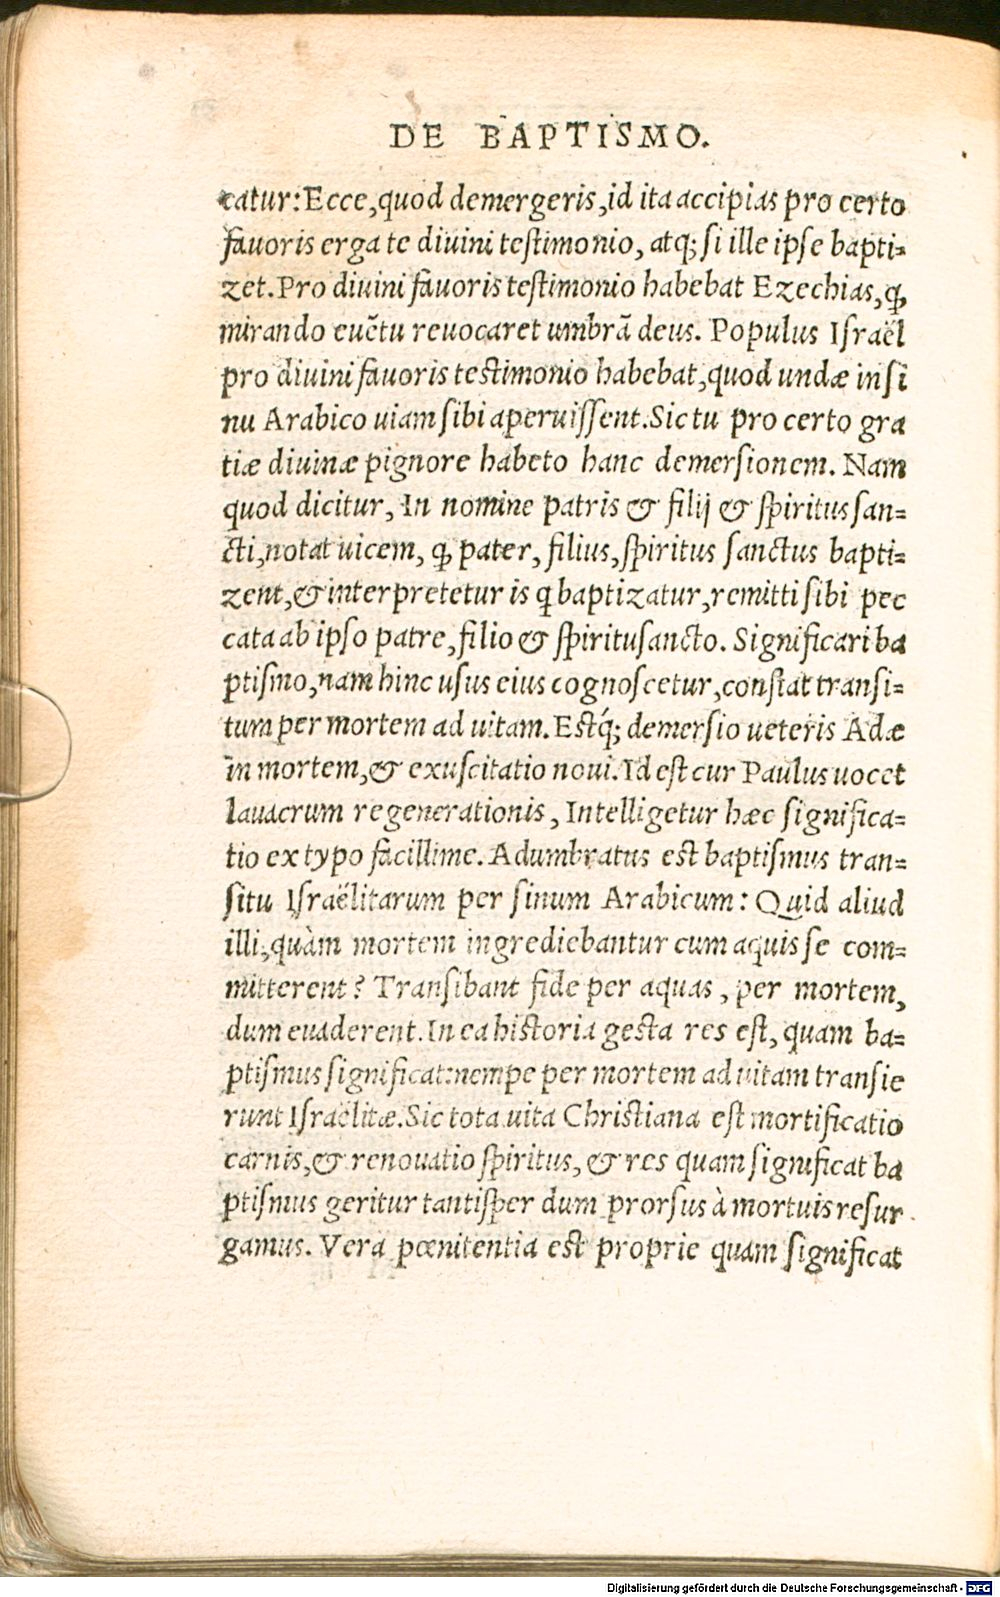 DE BAPTISMO.
catur: Ecce, quod demergeris, id ita accipias pro certo
fauoris erga te diuini testimonio, atq; si ille ipse bapti=
zet. Pro diuini fauoris testimonio habebat Ezechias, ꝙ
mirando euētu reuocaret umbrā deus. Populus Israël
pro diuini fauoris testimonio habebat, quod undæ in si
nu Arabico uiam sibi aperuissent. Sic tu pro certo gra
tiæ diuinæ pignore habeto hanc demersionem. Nam
quod dicitur, In nomine patris & filij & spiritus san=
cti, notat uicem, ꝙ pater, filius, spiritus sanctus bapti=
zent, & interpretetur is q̃ baptizatur, remitti sibi pec
cata ab ipso patre, filio & spiritusancto. Significari ba
ptismo, nam hinc usus eius cognoscetur, constat transi=
tum per mortem ad uitam. Estq́; demersio ueteris Adæ
in mortem, & exuscitatio noui. Id est cur Paulus uocet
lauacrum regenerationis, Intelligetur hæc significa=
tio ex typo facillime. Adumbratus est baptismus tran=
situ Israëlitarum per sinum Arabicum: Quid aliud
illi, quàm mortem ingrediebantur cum aquis se com=
mitterent? Transibant fide per aquas, per mortem,
dum euaderent. In ea historia gesta res est, quam ba=
ptismus significat: nempe per mortem ad uitam transie
runt Israëlitæ. Sic tota uita Christiana est mortificatio
carnis, & renouatio spiritus, & res quam significat ba
ptismus geritur tantisper dum prorsus à mortuis resur
gamus. Vera pœnitentia est proprie quam significat
Digitalisierung gefördert durch die Deutsche Forschungsgemeinschaft - DFG